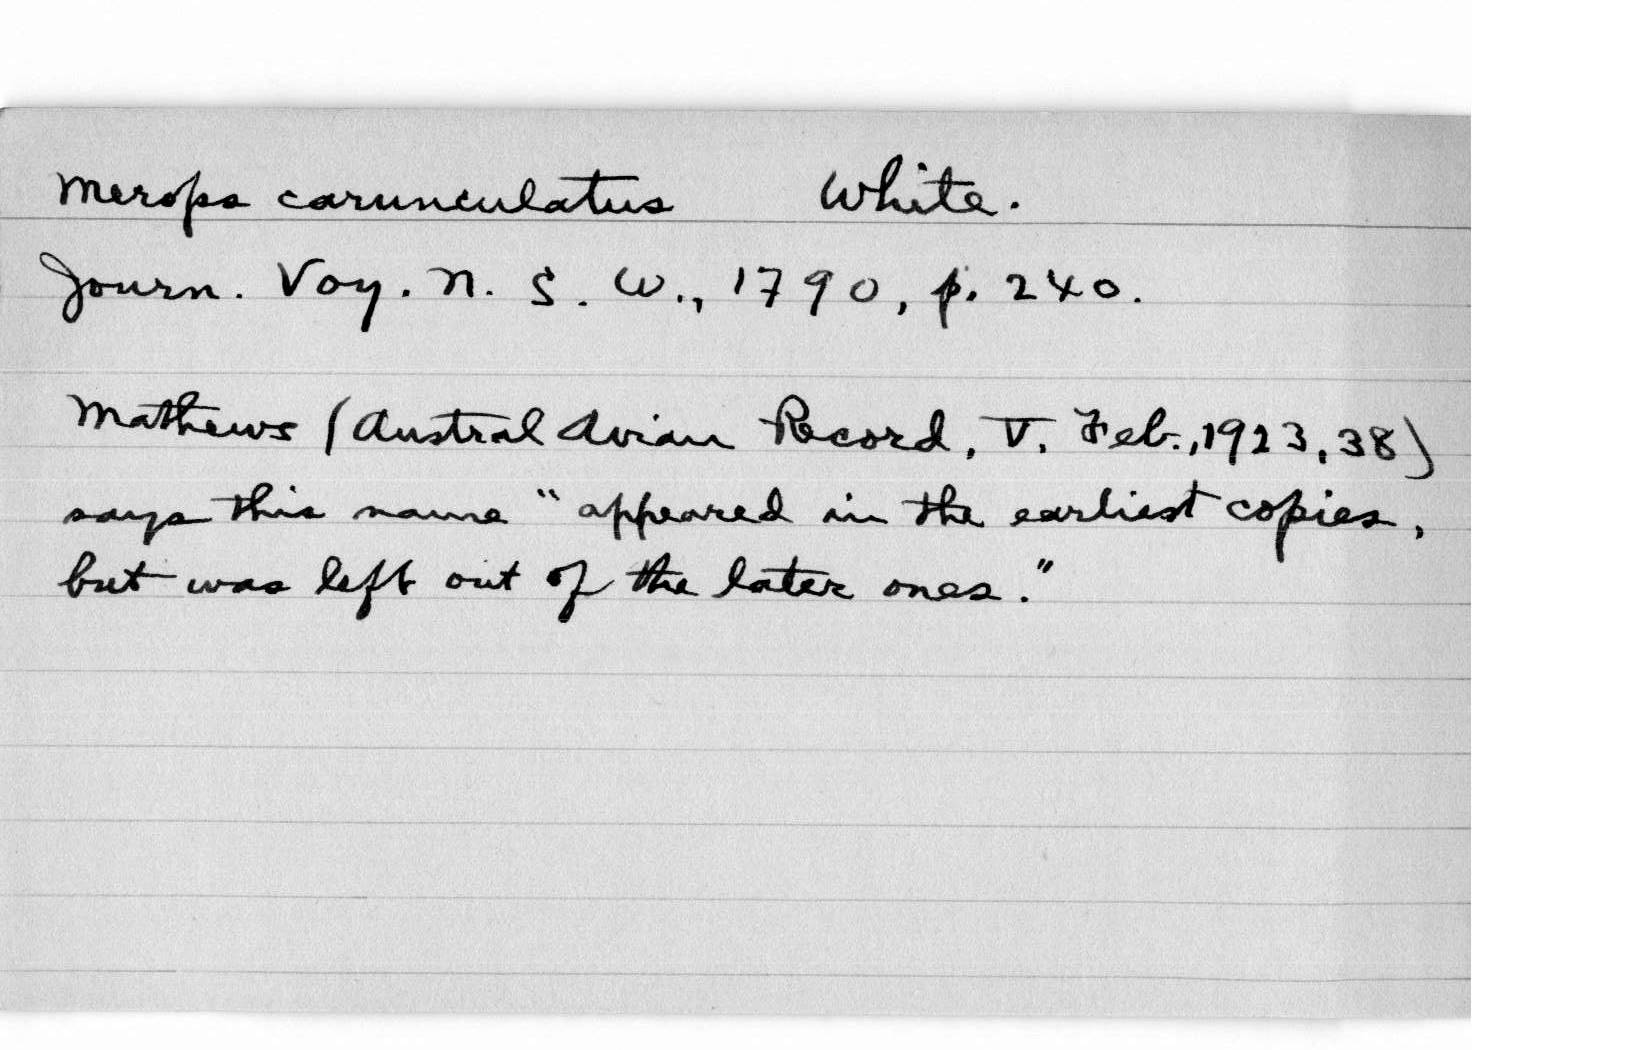 Merops carunculatus White.
Journ. Voy. N. S. W., 1790, p. 240.
Mathews (Austral Avian Record, V, Feb., 1923, 38)
says this name "appeared in the earliest copies,
but was left out of the later ones."